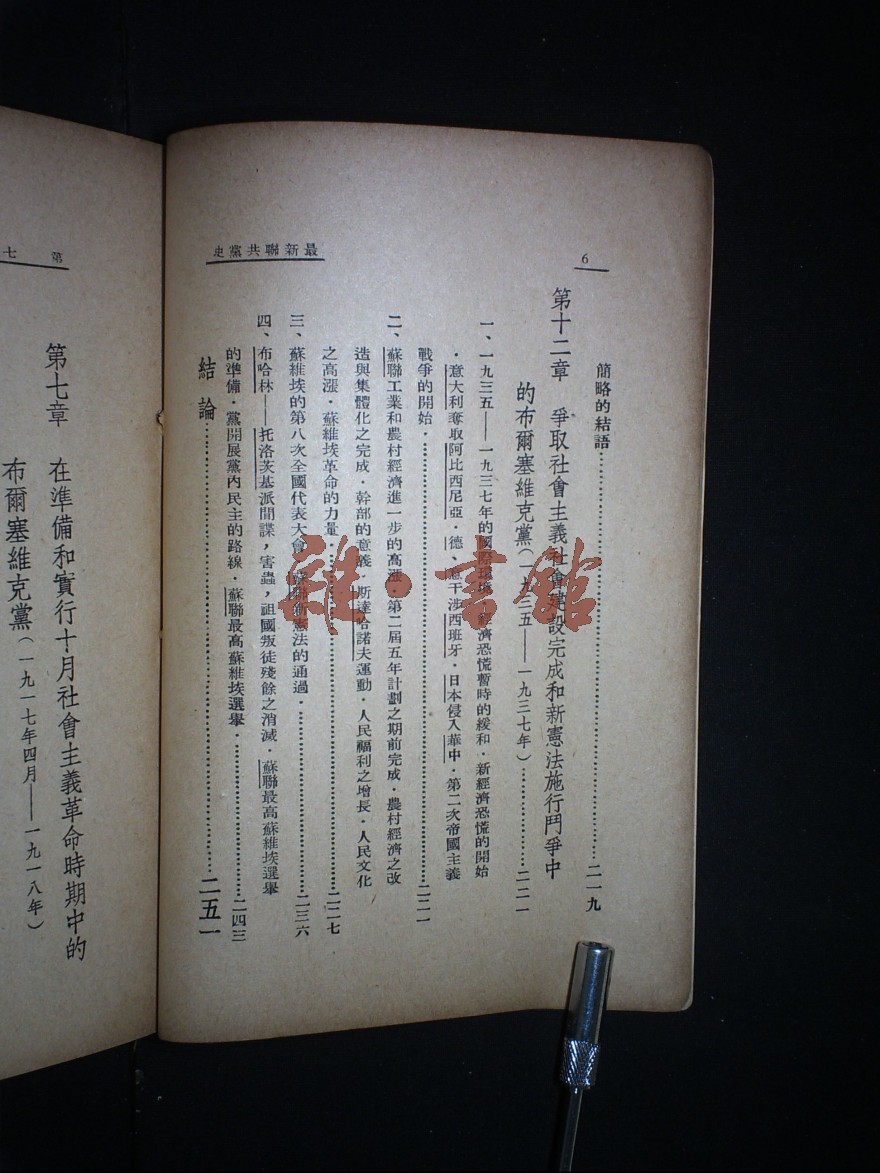 6
最新聯共黨史
簡略的結語……二一九
第十二章　爭取社會主義社會建設完成和新憲法施行鬥爭中
的布爾塞維克黨(一九三五——一九三七年)……二二一
一、一九三五——一九三七年的國際環境・經濟恐慌暫時的緩和・新經濟恐慌的開始
・意大利奪取阿比西尼亞・德、意干涉西班牙・日本侵入華中・第二次帝國主義
戰爭的開始・……二二一
二、蘇聯工業和農村經濟進一步的高漲・第二屆五年計劃之期前完成・農村經濟之改
造與集體化之完成・幹部的意義・斯達哈諾夫運動・人民福利之增長・人民文化
之高漲・蘇維埃革命的力量・……二二七
三、蘇維埃的第八次全國代表大會・蘇聯新憲法的通過・……二三六
四、布哈林——托洛茨基派間諜，害蟲，祖國叛徒殘餘之消滅・蘇聯最高蘇維埃選舉
的準備・黨開展黨內民主的路線・蘇聯最高蘇維埃選舉・……二四三
結論……二五一
第七
第七章　在準備和實行十月社會主義革命時期中的
布爾塞維克黨(一九一七年四月——一九一八年)
雜・書館